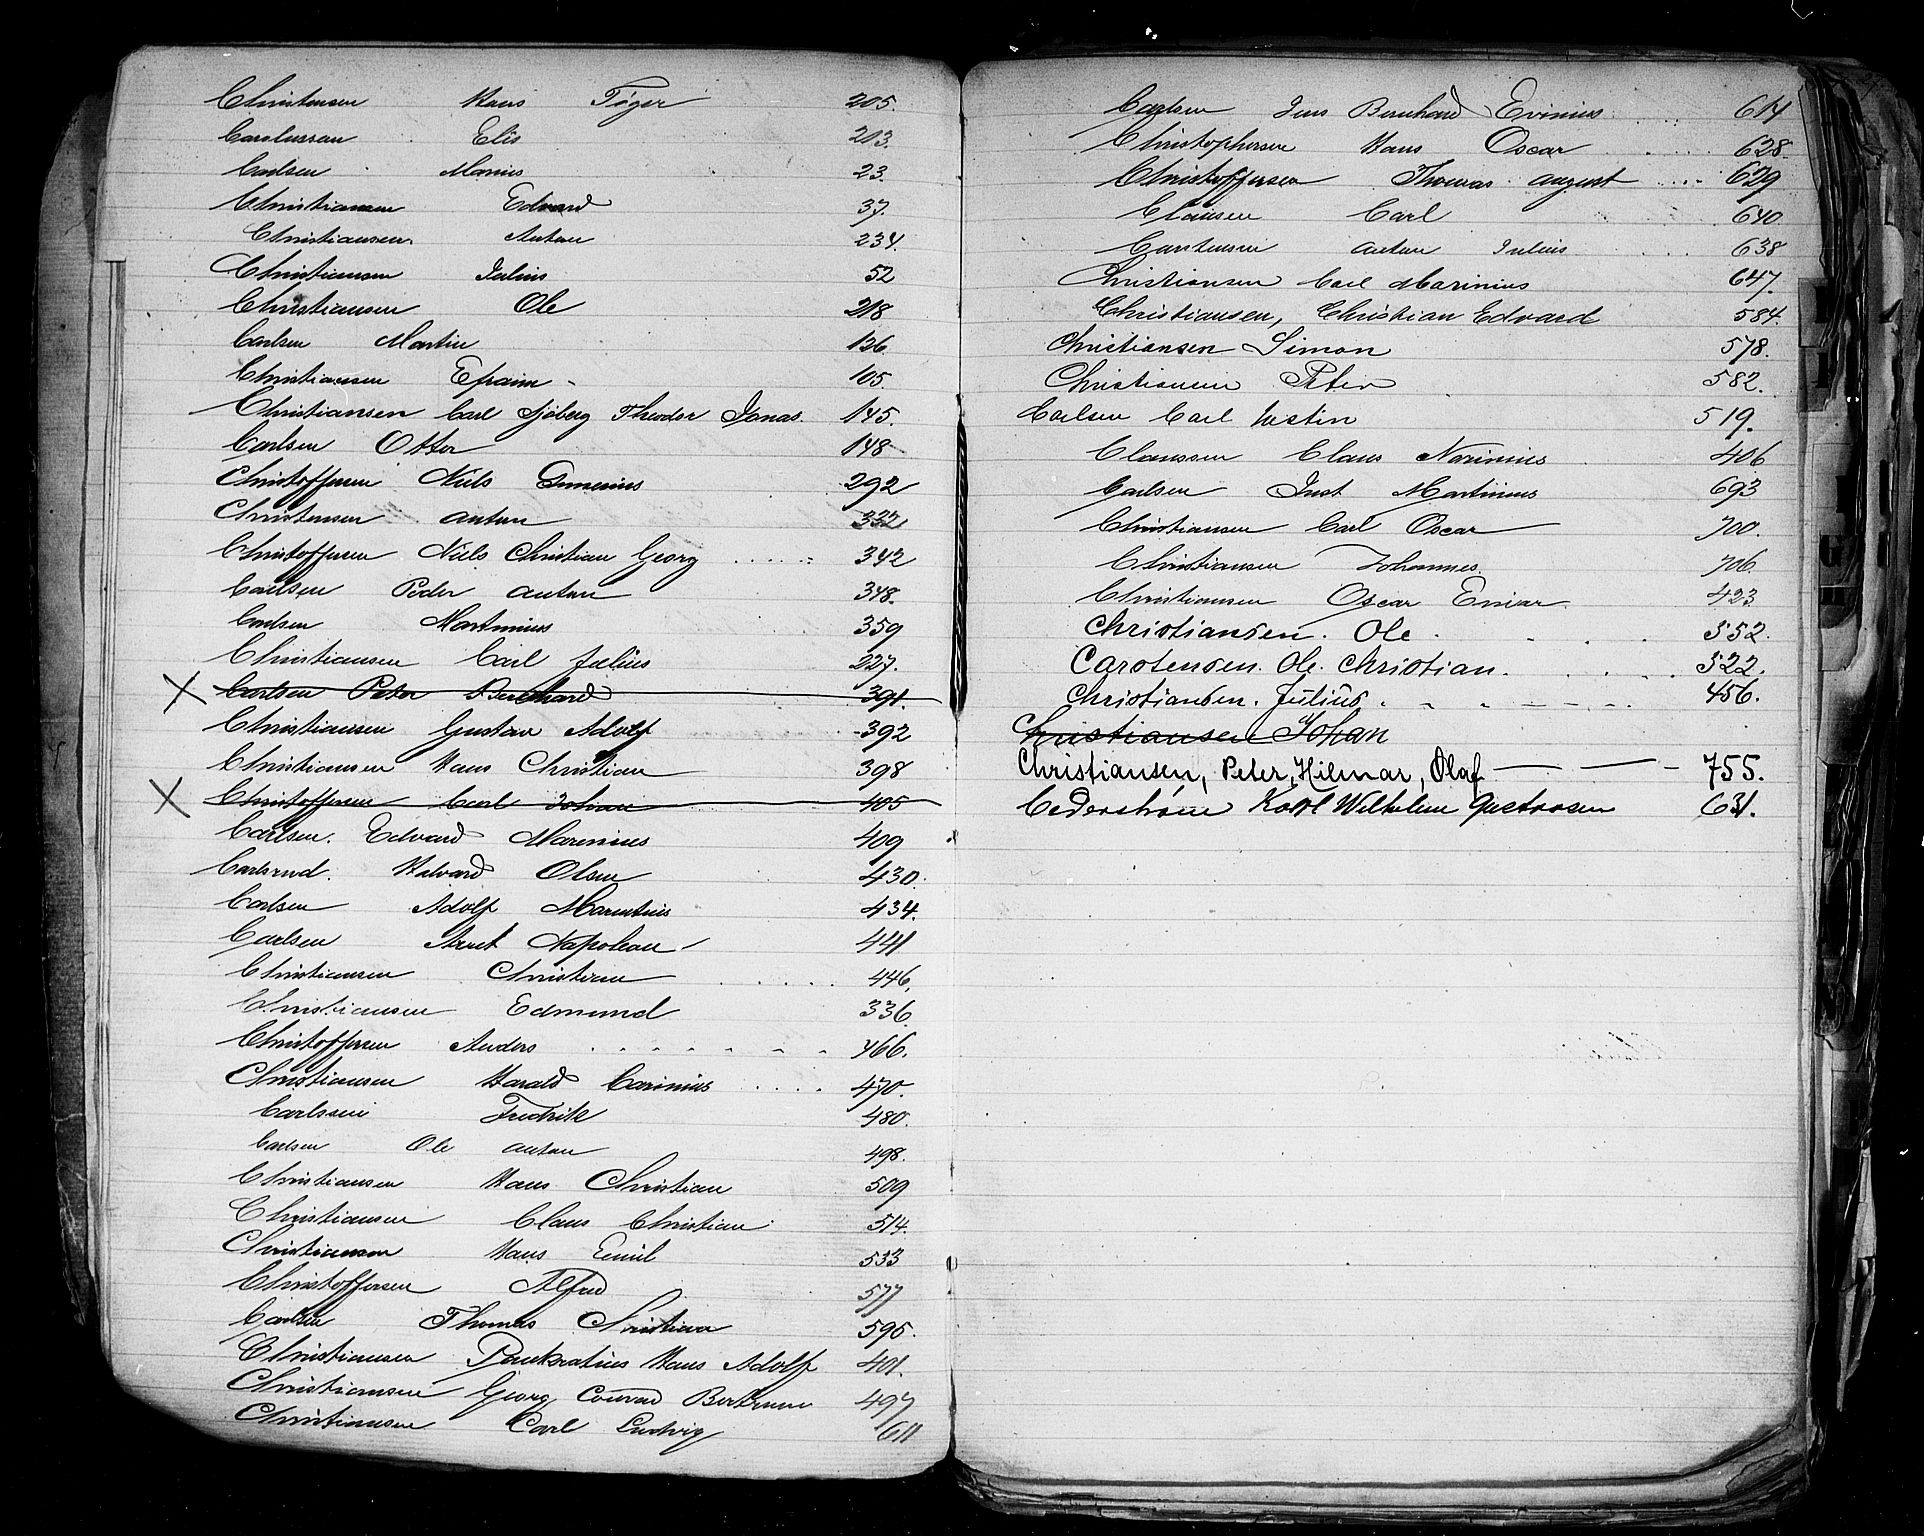 Christensen Hans Töger 205.
Carolussen Elis 203.
Carlsen Marius 23.
Christiansen Edvard 37.
Christiansen Anton 234.
Christiansen Julius 52
Christiansen Ole 218
Carlsen Martin 126
Christiansen Efraim 105.
Christiansen Carl Sjöberg Theodor Jonas. 145.
Carlsen Otto 148
Christoffersen Niels 292
Christensen Anton 332
Christoffersen Niels Christian Georg 342
Carlsen Peder Anton 348.
Carlsen Martinius 359
Christiansen Carl Julius 227.
X Carlsen Peter Bernhard 391.
Christiansen Gustav Adolf 392
Christiansen Hans Christian 398
X Christoffersen Carl Johan 405
Carlsen. Edvard Marenius 409
Carlsrud. Halvard Olsen 430.
Carlsen Adolf Marentius 434.
Carlsen Arnt Napoleon 441
Christiansen Christian 446.
Christiansen Edmund 336.
Christoffersen Anders 466.
Christiansen Harald Carinius 470.
Carlssen Fredrik 480.
Carlsen Ole Anton 498.
Christiansen Hans Christian 509
Christiansen Claus Christian 514.
Christiansen Hans Emil 533
Christoffersen Alfred 577
Carlsen Thomas Christian 595.
Christiansen Pankratius Hans Adolf 401.
Christiansen Georg Conrad 497
Christiansen Carl Ludvig 611
Carlsen Jens Bernhard Evinius 614
Christophersen Hans Oscar 628.
Christoffersen Thomas August 629
Clausen Carl 640
Carstensen Anton Julius 638
Christiansen Carl Marinius 647.
Christiansen, Christian Edvard 584.
Christiansen Simon 578.
Christiansen Peter 582.
Carlsen Carl Justin 519.
Claussen Claus Narinius 406
Carlsen Just Martinius 693
Christiansen Carl Oscar 700.
Christiansen Johannes. 706.
Christiansen Oscar Einar. 423
Christiansen. Ole 552.
Carstensen. Ole. Christian. 522.
Christiansen. Julius. 456.
Christiansen Johan
Christiansen, Peter, Hilmar, Olaf 755.
Cederstrøm Karl Wilhelm Gustavsen 631.